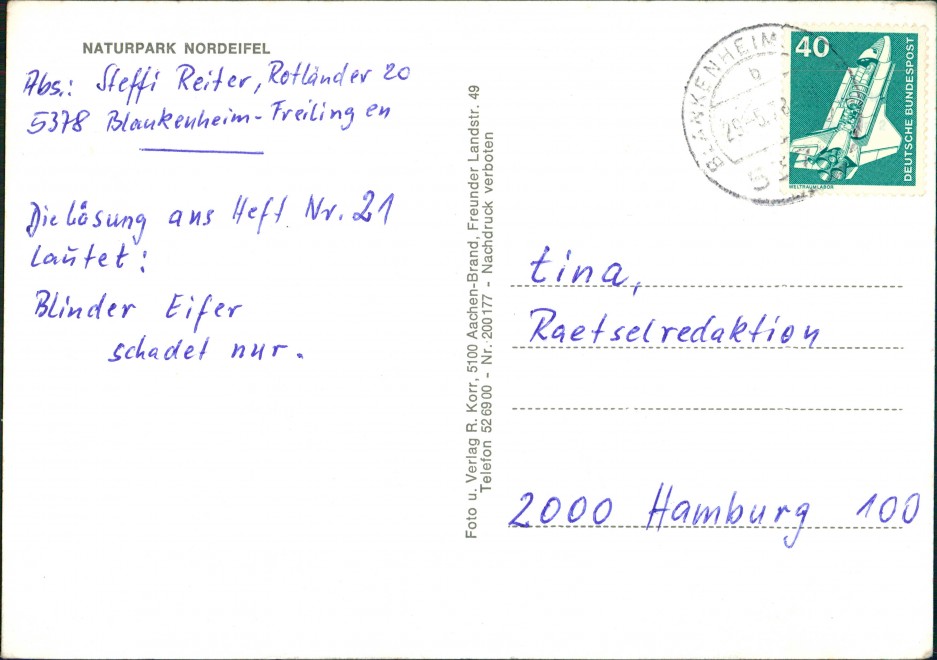 NATURPARK NORDEIFEL
Abs.: Steffi Reiter, Rotländer 20
5378 Blankenheim-Freilingen
Die Lösung aus Heft Nr. 21
lautet:
Blinder Eifer
schadet nur.
Foto u. Verlag R. Korr, 5100 Aachen-Brand, Freunder Landstr. 49
Telefon 526900 - Nr. 200177 - Nachdruck verboten
BLANKENHEIM
b
40
DEUTSCHE BUNDESPOST
WELTRAUMLABOR
tina,
Raetselredaktion
2000 Hamburg 100